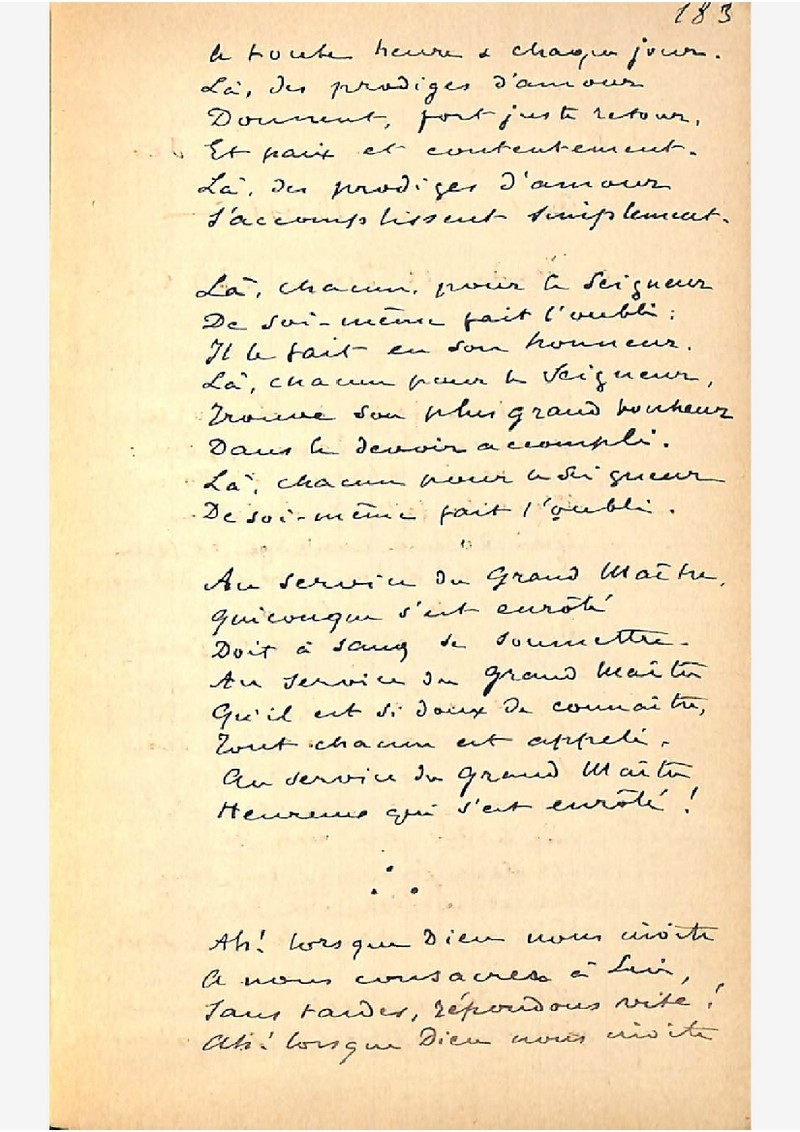 183
A toute heure & chaque jour.
Là, des prodiges d'amour
Donnent, fort juste retour,
Et paix et contentement.
Là, des prodiges d'amour
S'accomplissent simplement.
Là, chacun, pour le Seigneur
De soi-même fait l'oubli;
Il le fait en son honneur.
Là, chacun pour le Seigneur,
Trouve son plus grand bonheur
Dans le devoir accompli.
Là, chacun pour le Seigneur
De soi-même fait l'oubli.
Au service du Grand Maître,
Quiconque s'est enrôlé
Doit à se soumettre.
Au service du Grand Maître
Qu'il est si doux de connaître,
Tout chacun est appelé.
Au service du Grand Maître
Heureux qui s'est enrôlé!
Ah! lorsque Dieu nous invite
A nous consacrer à Lui,
Sans tarder, répondons vite!
Ah! lorsque Dieu nous invite